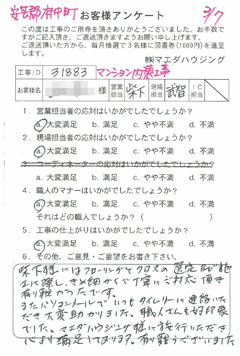 安芸郡府中町 お客様アンケート 3/7
この度は工事のご用命を頂きありがとうございました。お手数で
すがご記入頂き、ご返送頂きますようお願い申し上げます。
ご返送頂いた方から、毎月抽選で3名様に図書券(1000円)を進呈
します。 ㈱マエダハウジング
工事ID 31883 マンション内装工事
お客様名 様 営業担当 柴下 現場担当 武田 IC担当
1. 営業担当者の応対はいかがでしたでしょうか?
a. 大変満足 b. 満足 c. やや不満 d. 不満
2. 現場担当者の応対はいかがでしたでしょうか?
a. 大変満足 b. 満足 c. やや不満 d. 不満
3. コーディネーターの応対はいかがでしたでしょうか?
a. 大変満足 b. 満足 c. やや不満 d. 不満
4. 職人のマナーはいかがでしたでしょうか?
a. 大変満足 b. 満足 c. やや不満 d. 不満
それはどの職人でしょうか?( )
5. 工事の仕上がりはいかがでしたでしょうか?
a. 大変満足 b. 満足 c. やや不満 d. 不満
6. その他、ご意見・ご要望をお書き下さい。
柴下様にはフローリングやクロスの選定など施
工に際し、きめ細かく丁寧にご対応頂き
有り難かったです。
またパソコンメールでいつもタイムリーに連絡いた
だき大変助かりました。職人さんも好印象
でした。マエダハウジング様にお任せいただき
心より満足しております。有り難うございました